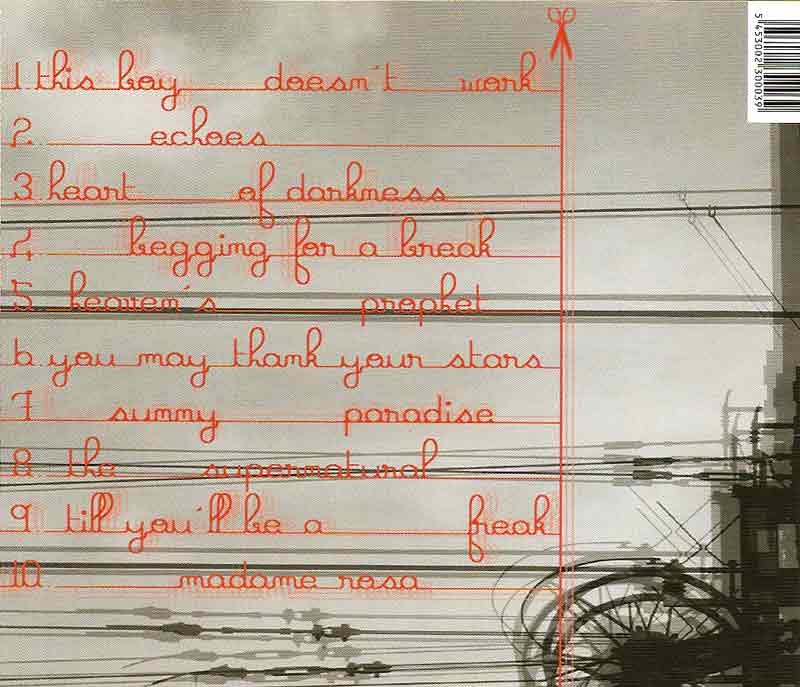 1. this boy doesn't work
2. echoes
3. heart of darkness
4. begging for a break
5. heaven's prophet
6. you may thank your stars
7 summy paradise
8 the supernatural
9 till you'll be a freak
10 madame rosa
5453002300039